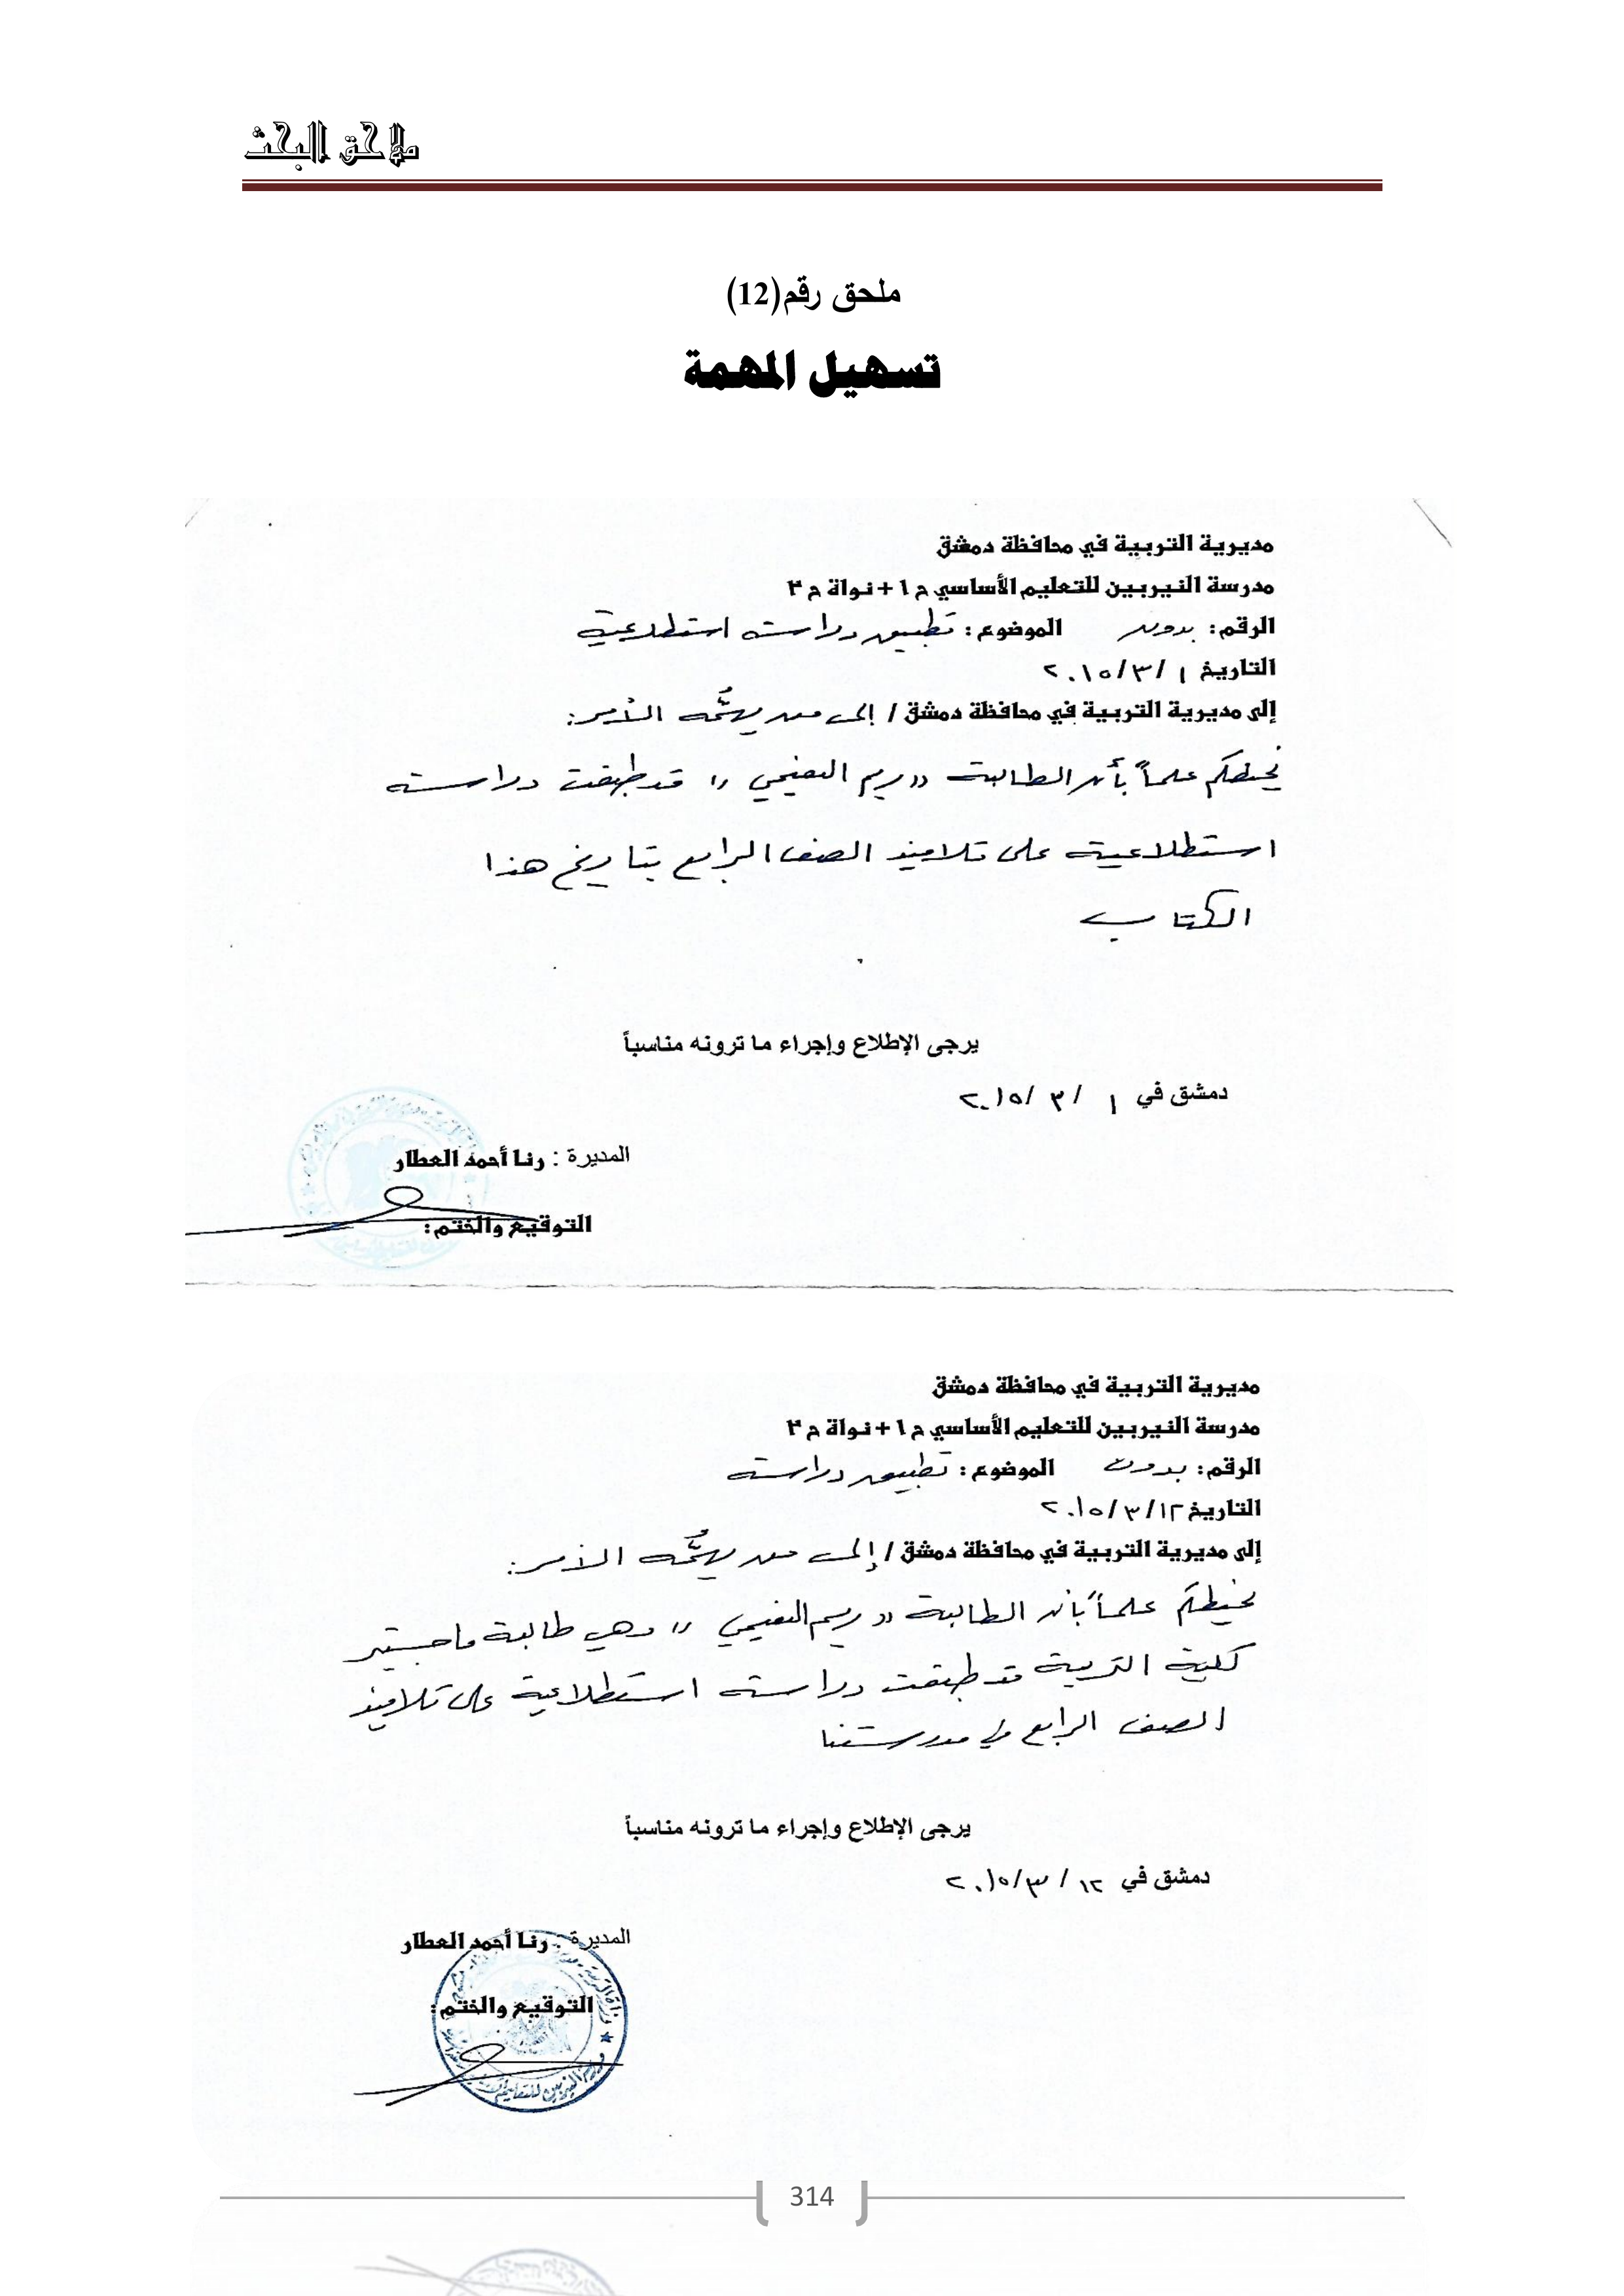 ملاحق البحث
ملحق رقم(12)
تسهيل المهمة
مديرية التربية في محافظة دمشق
مدرسة النيربين للتعليم الأساسي ح١ + نواة ح٢
الرقم: بدون الموضوع: تطبيق دراسة استطلاعية
التاريخ ١ /٣ /٢٠١٥
إلى مديرية التربية في محافظة دمشق / إلى من يهمُّه الأمر:
نحيطكم علماً بأن الطالبة "ريم النعيمي" قد طبقت دراسة
استطلاعية على تلاميذ الصف الرابع بتاريخ هذا
الكتاب
يرجى الإطلاع وإجراء ما ترونه مناسباً
دمشق في ١ / ٣ /٢٠١٥
المديرة : رنا أحمد العطار
التوقيع والختم:
مديرية التربية في محافظة دمشق
مدرسة النيربين للتعليم الأساسي ح١ + نواة ح٢
الرقم: بدون الموضوع: تطبيق دراسة
التاريخ ١٢ /٣ /٢٠١٥
إلى مديرية التربية في محافظة دمشق / إلى من يهمُّه الأمر:
نحيطكم علماً بأن الطالبة "ريم النعيمي" وهي طالبة ماجستير
كلية التربية قد طبقت دراسة استطلاعية على تلاميذ
الصف الرابع في مدرستنا
يرجى الإطلاع وإجراء ما ترونه مناسباً
دمشق في ١٢ / ٣ /٢٠١٥
المديرة : رنا أحمد العطار
التوقيع والختم:
314